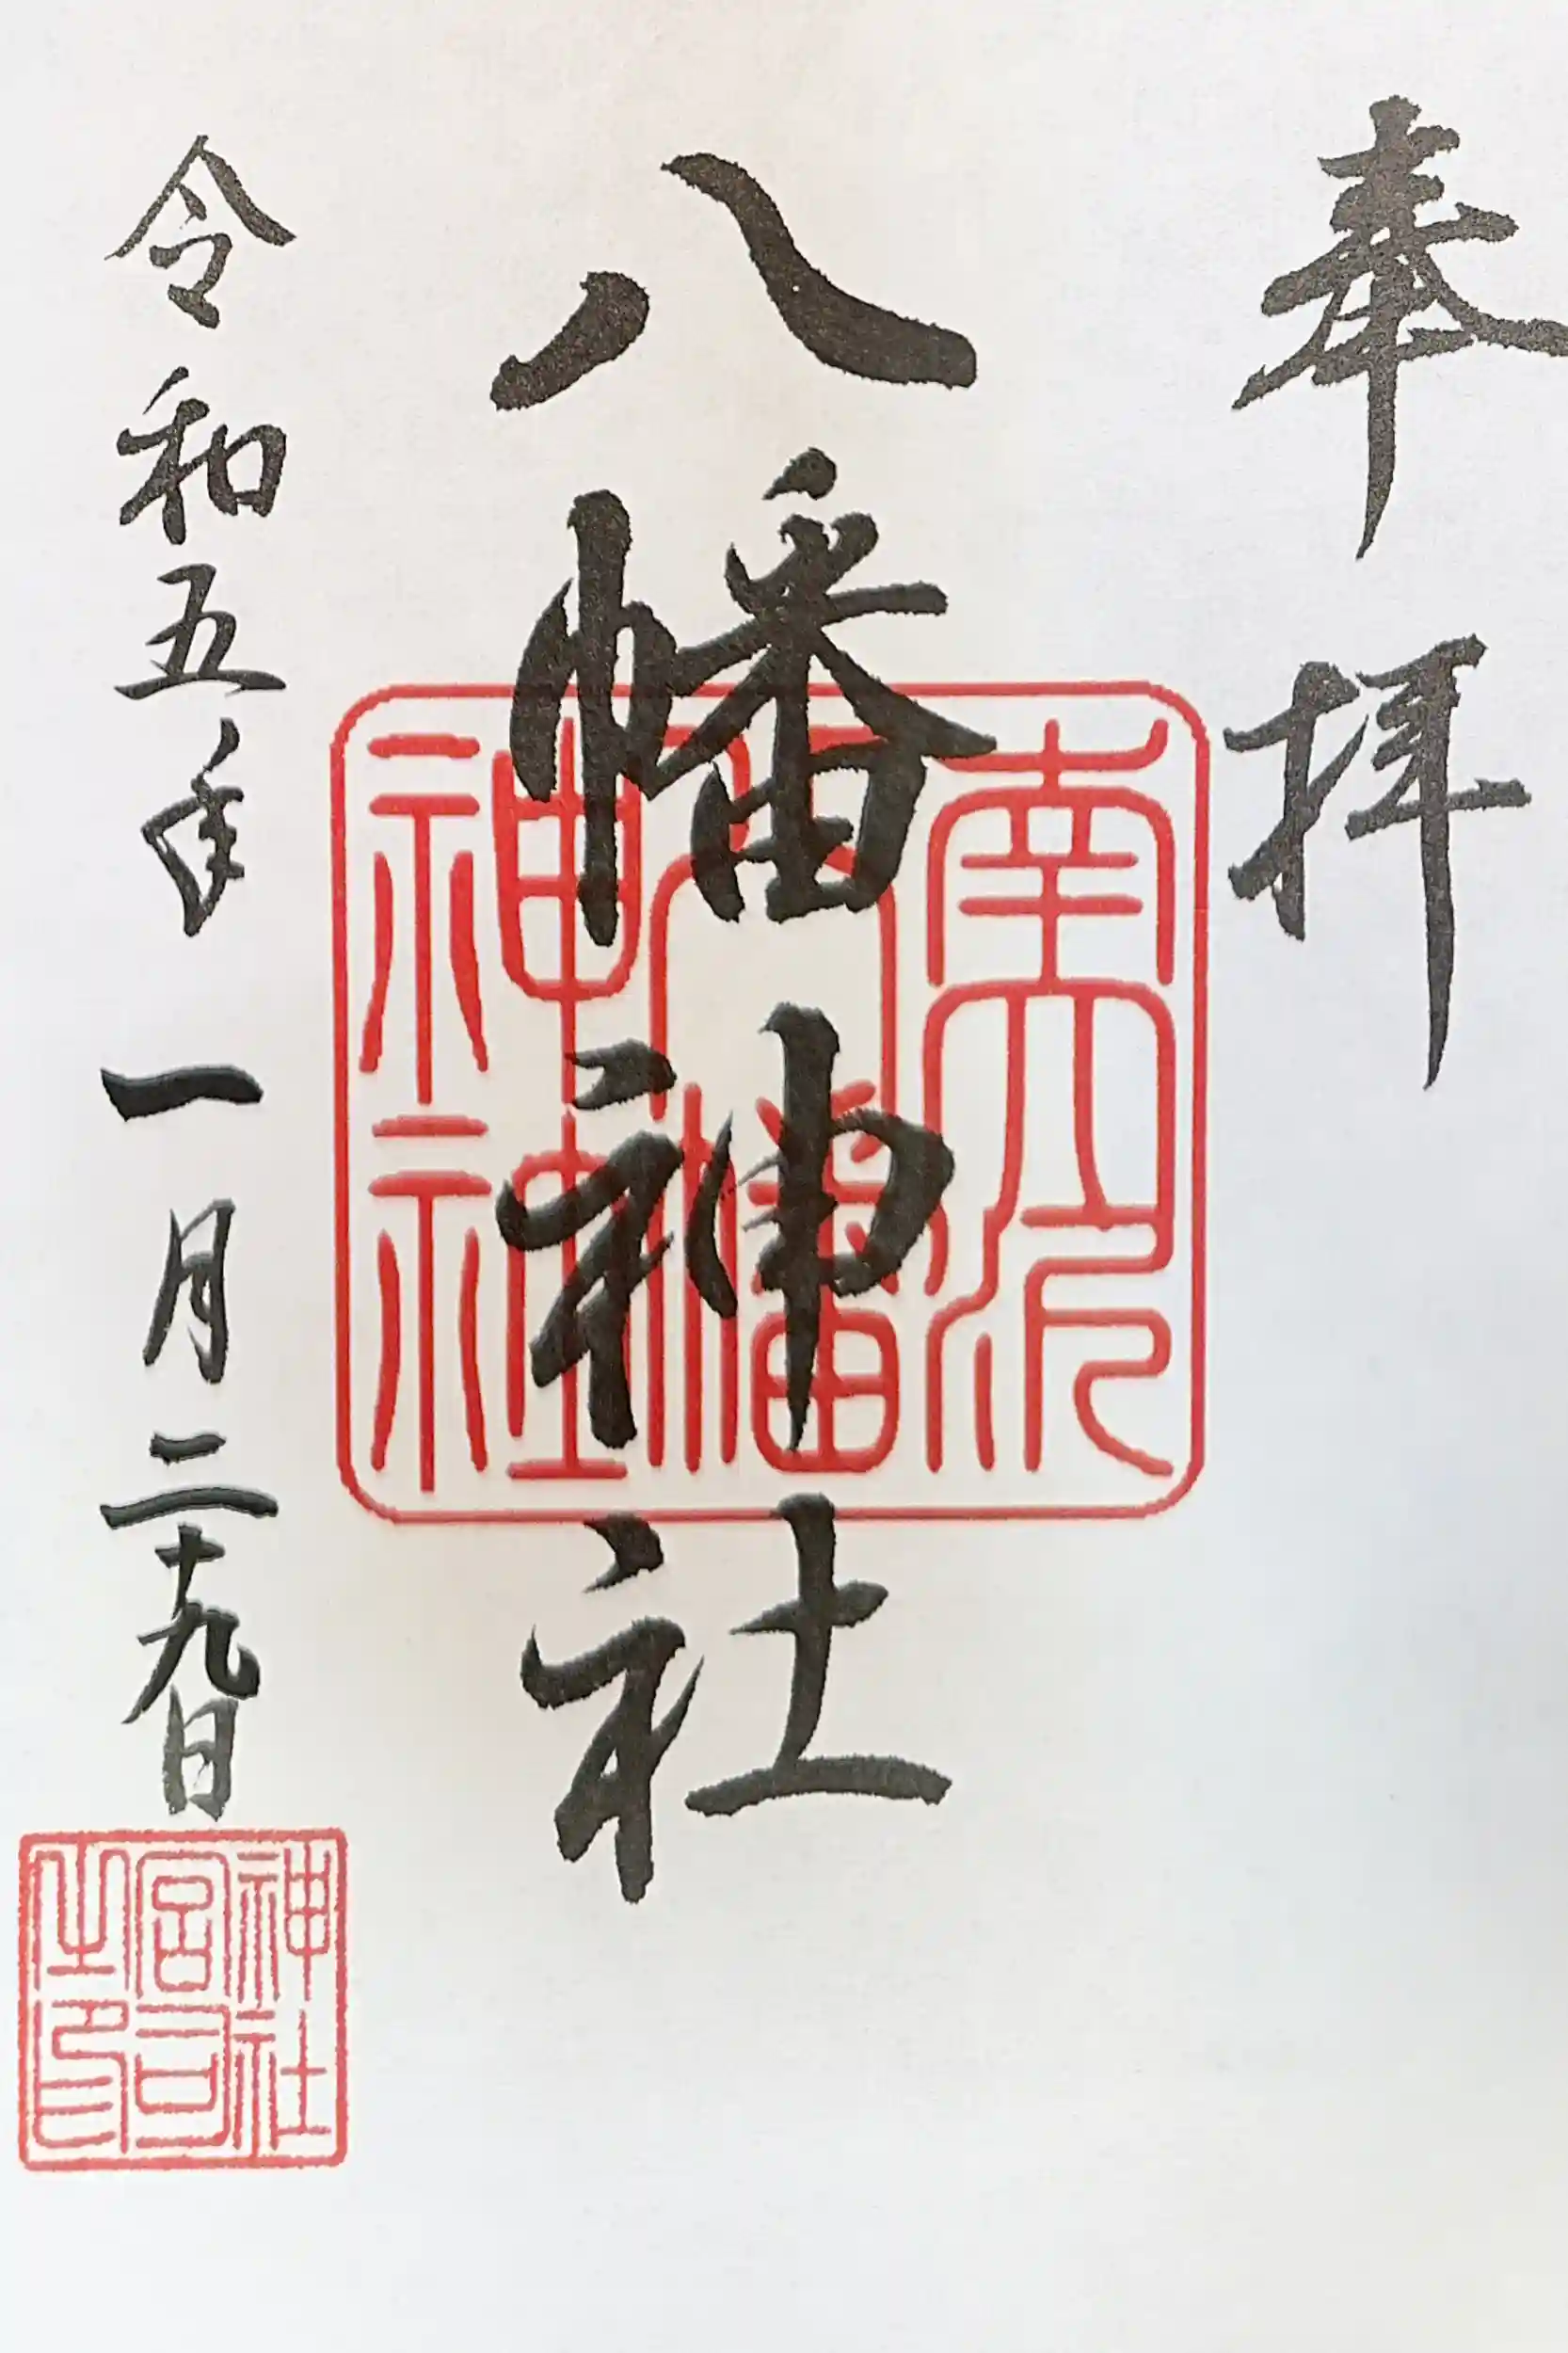 奉拝
八幡神社
令和五年一月二十九日
南六沢
八幡
神社
神社
宮司
之印